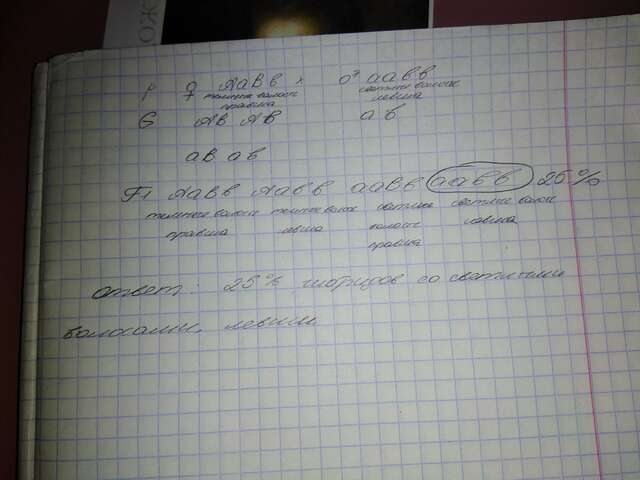 ОЖ
P ♀ АаВв × ♂ аавв
темные волосы светлые волосы
правша левша
G АВ Ав ав
аВ ав
F1 АаВв Аавв ааВв аавв 25%
темные волосы темные волосы светлые светлые волосы
правша левша волосы левша
правша
ответ: 25% гибридов со светлыми
волосами, левши